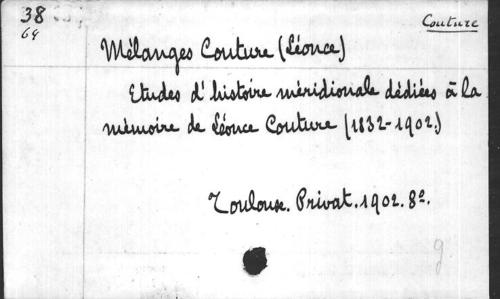 38
64
Couture
Mélanges Couture (Léonce)
Etudes d'histoire méridionale dédiées à la
mémoire de Léonce Couture (1832-1902.)
Toulouse. Privat. 1902. 8º.
g